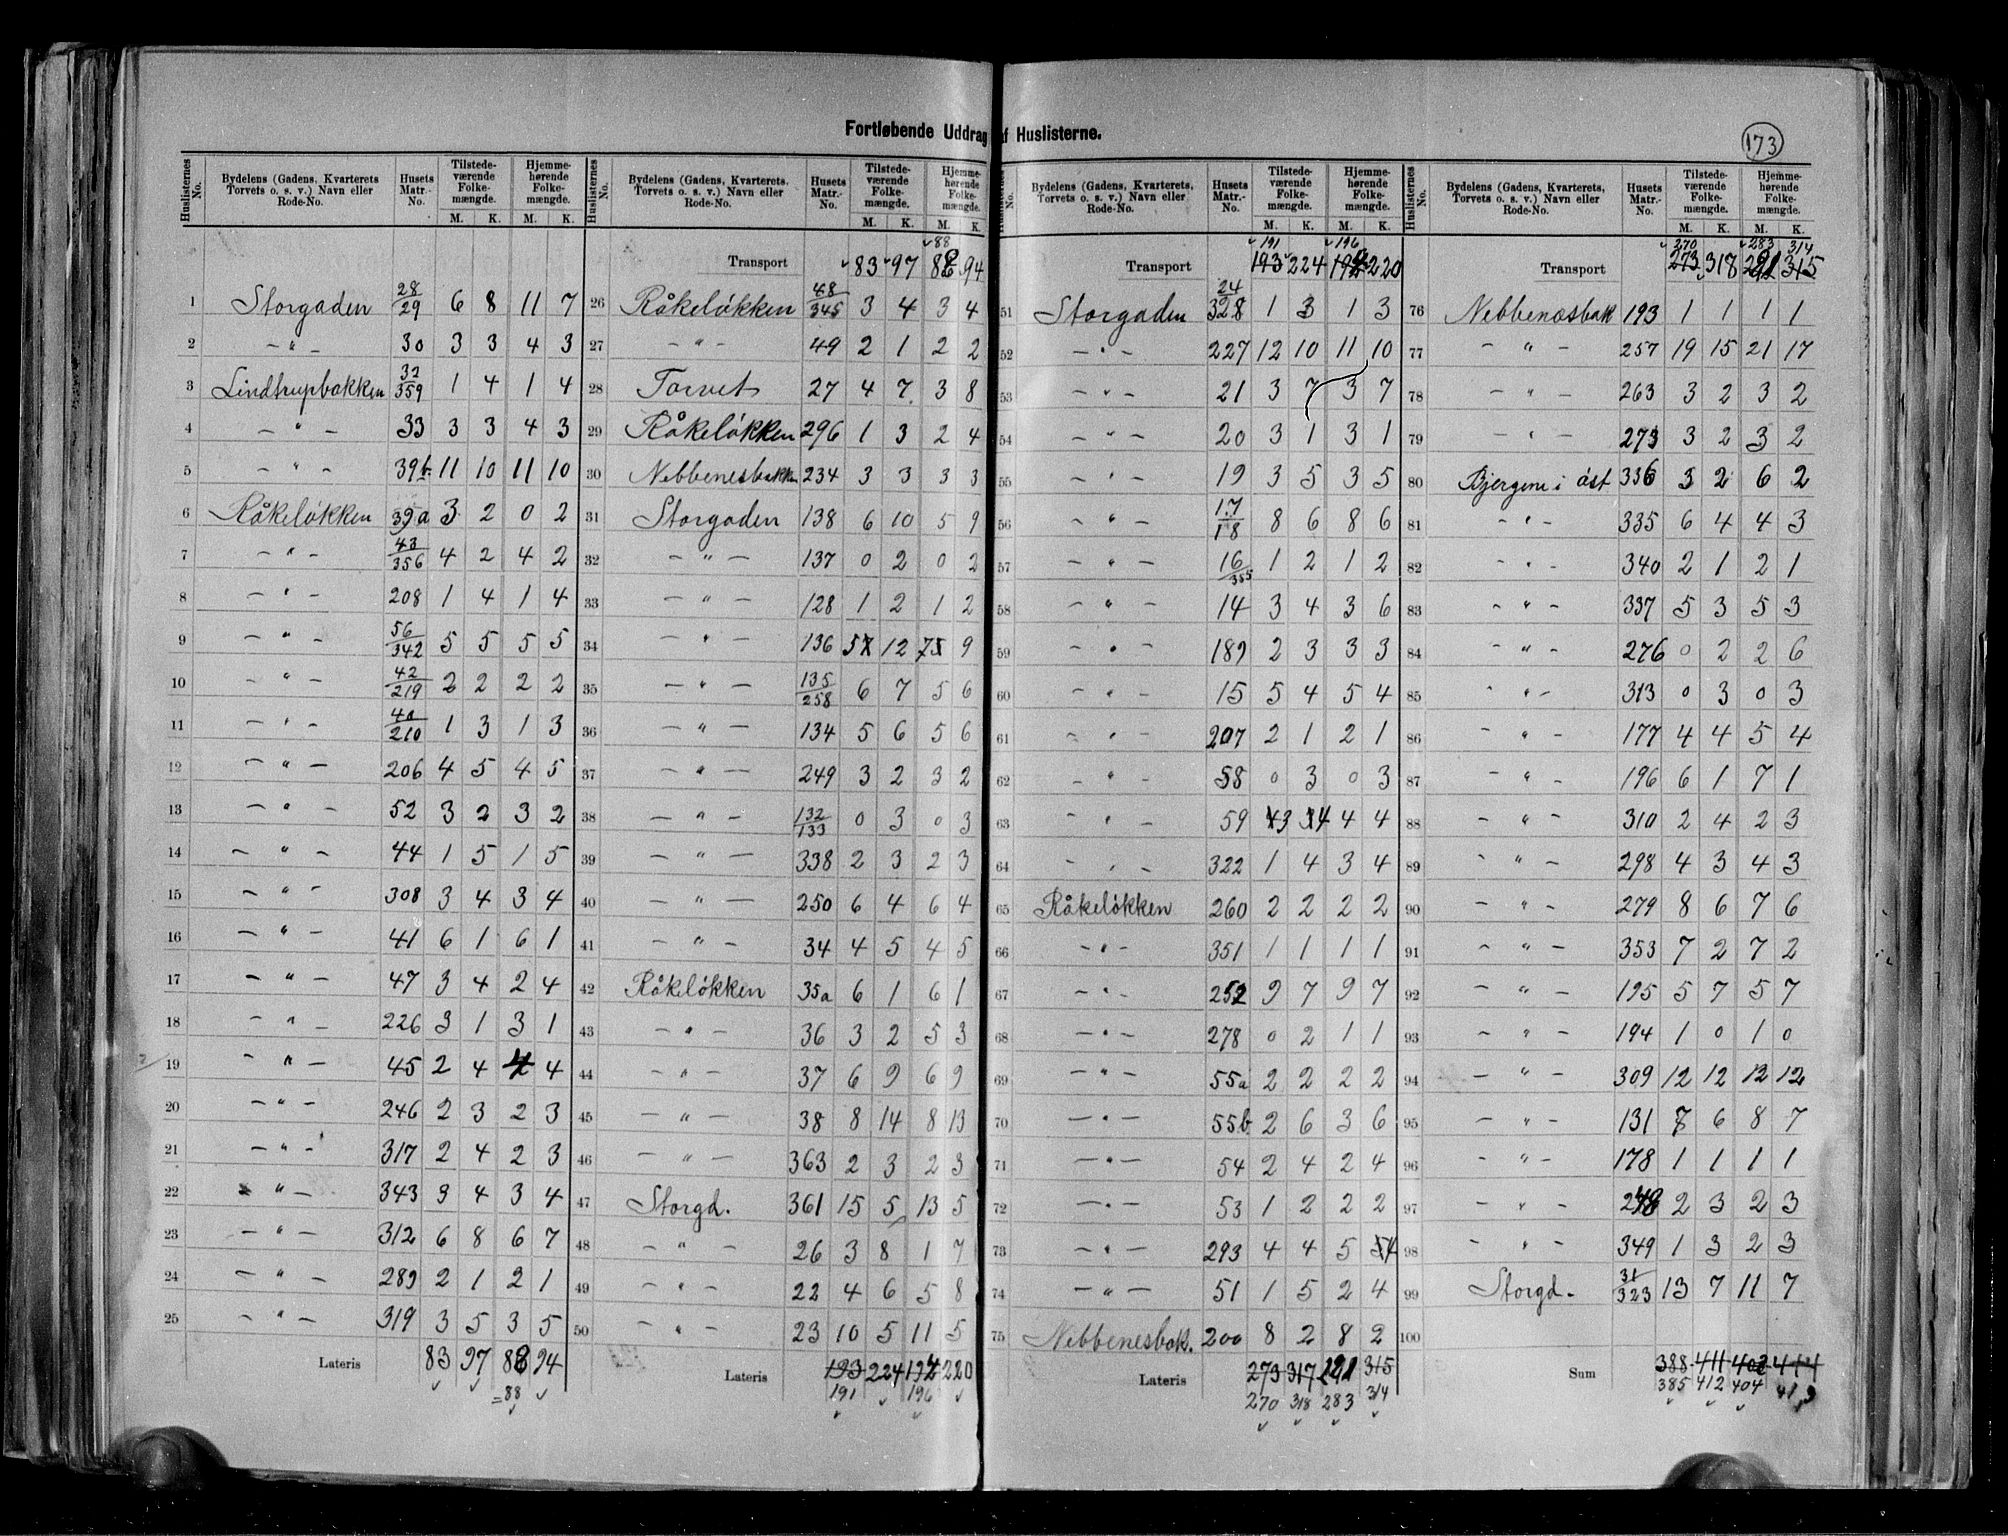 Fortløbende Uddrag af Huslisterne.
173
Huslisternes No. Bydelens (Gadens, Kvarterets, Torvets o. s. v.) Navn eller Rode-No. Husets Matr.-No. Tilstedeværende Folkemængde. M. K. Hjemmehørende Folkemængde. M. K.
1 Storgaden 28/29 6 8 11 7
2 — " — 30 3 3 4 3
3 Lindtrupbakken 32/359 1 4 1 4
4 — " — 33 3 3 4 3
5 — " — 39b 11 10 11 10
6 Råkeløkken 39a 3 2 0 2
7 — " — 43/356 4 2 4 2
8 — " — 208 1 4 1 4
9 — " — 56/342 5 5 5 5
10 — " — 42/219 2 2 2 2
11 — " — 40/210 1 3 1 3
12 — " — 206 4 5 4 5
13 — " — 52 3 2 3 2
14 — " — 44 1 5 1 5
15 — " — 308 3 4 3 4
16 — " — 41 6 1 6 1
17 — " — 47 3 4 2 4
18 — " — 226 3 1 3 1
19 — " — 45 2 4 4 4
20 — " — 246 2 3 2 3
21 — " — 317 2 4 2 3
22 — " — 343 3 4 3 4
23 — " — 312 6 8 6 7
24 — " — 289 2 1 2 1
25 — " — 319 3 5 3 5
Lateris 83 97 88 94
=88
Huslisternes No. Bydelens (Gadens, Kvarterets, Torvets o. s. v.) Navn eller Rode-No. Husets Matr.-No. Tilstedeværende Folkemængde. M. K. Hjemmehørende Folkemængde. M. K.
88
Transport 83 97 88 94
26 Råkeløkken 48/345 3 4 3 4
27 — " — 49 2 1 2 2
28 Torvet 27 4 7 3 8
29 Råkeløkken 296 1 3 2 4
30 Nebbenesbakken 234 3 3 3 3
31 Storgaden 138 6 10 5 9
32 — " — 137 0 2 0 2
33 — " — 128 1 2 1 2
34 — " — 136 5 12 7 9
35 — " — 135/258 6 7 5 6
36 — " — 134 5 6 5 6
37 — " — 249 3 2 3 2
38 — " — 132/133 0 3 0 3
39 — " — 338 2 3 2 3
40 — " — 250 6 4 6 4
41 — " — 34 4 5 4 5
42 Råkeløkken 35a 6 1 6 1
43 — " — 36 3 2 5 3
44 — " — 37 6 9 6 9
45 — " — 38 8 14 8 13
46 — " — 363 2 3 2 3
47 Storgd. 361 15 5 13 5
48 — " — 26 3 8 1 7
49 — " — 22 4 6 5 8
50 — " — 23 10 5 11 5
Lateris 193 224 194 220
191 196
Huslisternes No. Bydelens (Gadens, Kvarterets, Torvets o. s. v.) Navn eller Rode-No. Husets Matr.-No. Tilstedeværende Folkemængde. M. K. Hjemmehørende Folkemængde. M. K.
191 196
Transport 193 224 194 220
51 Storgaden 24/328 1 3 1 3
52 — " — 227 12 10 11 10
53 — " — 21 3 7 3 7
54 — " — 20 3 1 3 1
55 — " — 19 3 5 3 5
56 — " — 17/18 8 6 8 6
57 — " — 16/355 1 2 1 2
58 — " — 14 3 4 3 6
59 — " — 189 2 3 3 3
60 — " — 15 5 4 5 4
61 — " — 207 2 1 2 1
62 — " — 58 0 3 0 3
63 — " — 59 3 4 4 4
64 — " — 322 1 4 3 4
65 Råkeløkken 260 2 2 2 2
66 — " — 351 1 1 1 1
67 — " — 252 9 7 9 7
68 — " — 278 0 2 1 1
69 — " — 55a 2 2 2 2
70 — " — 55b 2 6 3 6
71 — " — 54 2 4 2 4
72 — " — 53 1 2 2 2
73 — " — 293 4 4 5 4
74 — " — 51 1 5 2 4
75 Nebbenesbak. 200 8 2 8 2
Lateris 273 317 281 315
270 318 283 314
Huslisternes No. Bydelens (Gadens, Kvarterets, Torvets o. s. v.) Navn eller Rode-No. Husets Matr.-No. Tilstedeværende Folkemængde. M. K. Hjemmehørende Folkemængde. M. K.
270 283 314
Transport 273 318 281 315
76 Nebbenæsbak 193 1 1 1 1
77 — " — 257 19 15 21 17
78 — " — 263 3 2 3 2
79 — " — 273 3 2 3 2
80 Bjergene i øst 336 3 2 6 2
81 — " — 335 6 4 4 3
82 — " — 340 2 1 2 1
83 — " — 337 5 3 5 3
84 — " — 276 0 2 2 6
85 — " — 313 0 3 0 3
86 — " — 177 4 4 5 4
87 — " — 196 6 1 7 1
88 — " — 310 2 4 2 3
89 — " — 298 4 3 4 3
90 — " — 279 8 6 7 6
91 — " — 353 7 2 7 2
92 — " — 195 5 7 5 7
93 — " — 194 1 0 1 0
94 — " — 309 12 12 12 12
95 — " — 131 7 6 8 7
96 — " — 178 1 1 1 1
97 — " — 248 2 3 2 3
98 — " — 349 1 3 2 3
99 Storgd. 31/323 13 7 11 7
100
Sum 388 411 402 414
385 412 404 413